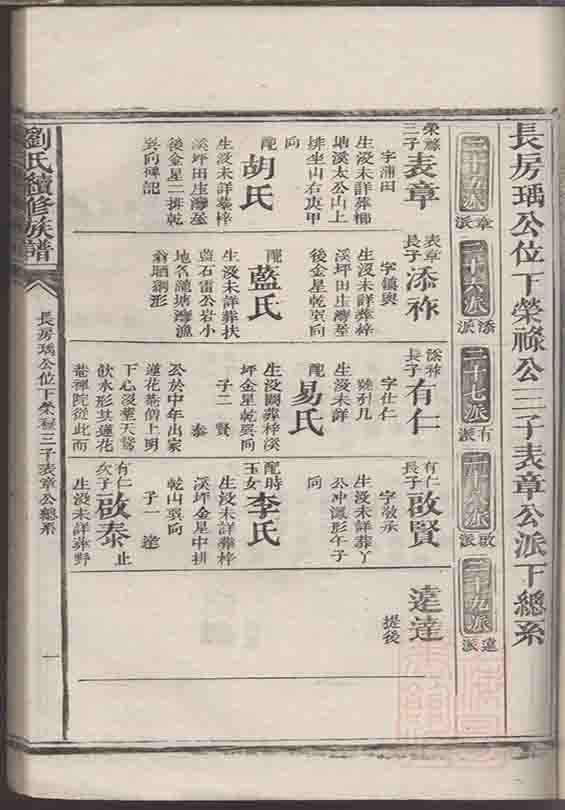 長房瑀公位下榮祿公三子表章公派下總系
二十五派
章派
二十六派
添派
二十七派
有派
二十八派
啟派
二十九派
達派
榮祿
三子
表章
字蒲田
生沒未詳葬櫛
塘溪太公山上
排坐山右庚甲
向
配
胡氏
生沒未詳葬梓
溪坪田庄灣
後金星二排乾
巽向碑記
表章
長子
添祚
字鎮輿
生沒未詳葬梓
溪坪田庄灣
後金星乾巽向
配
藍氏
生沒未詳葬扶
藍石雷公岩小
地名瀧塘灣漁
翁晒網形
添祚
長子
有仁
字仕仁
生沒未詳
配
易氏
生沒闕葬梓溪
坪金星乾巽向
子二
賢
泰
公於中年出家
蓮花菴僧上明
下心沒葬天鵞
飲水形其蓮花
菴禪院從此而
有仁
長子
啟賢
字敬承
生沒未詳葬丫
公冲鳳形午子
向
配時
玉女
李氏
生沒未詳葬梓
溪坪金星中排
乾山巽向
子一
達
有仁
次子
啟泰
止
生沒未詳葬野
達
提後
劉氏續修族譜
長房瑀公位下榮祿三子表章公總系
一